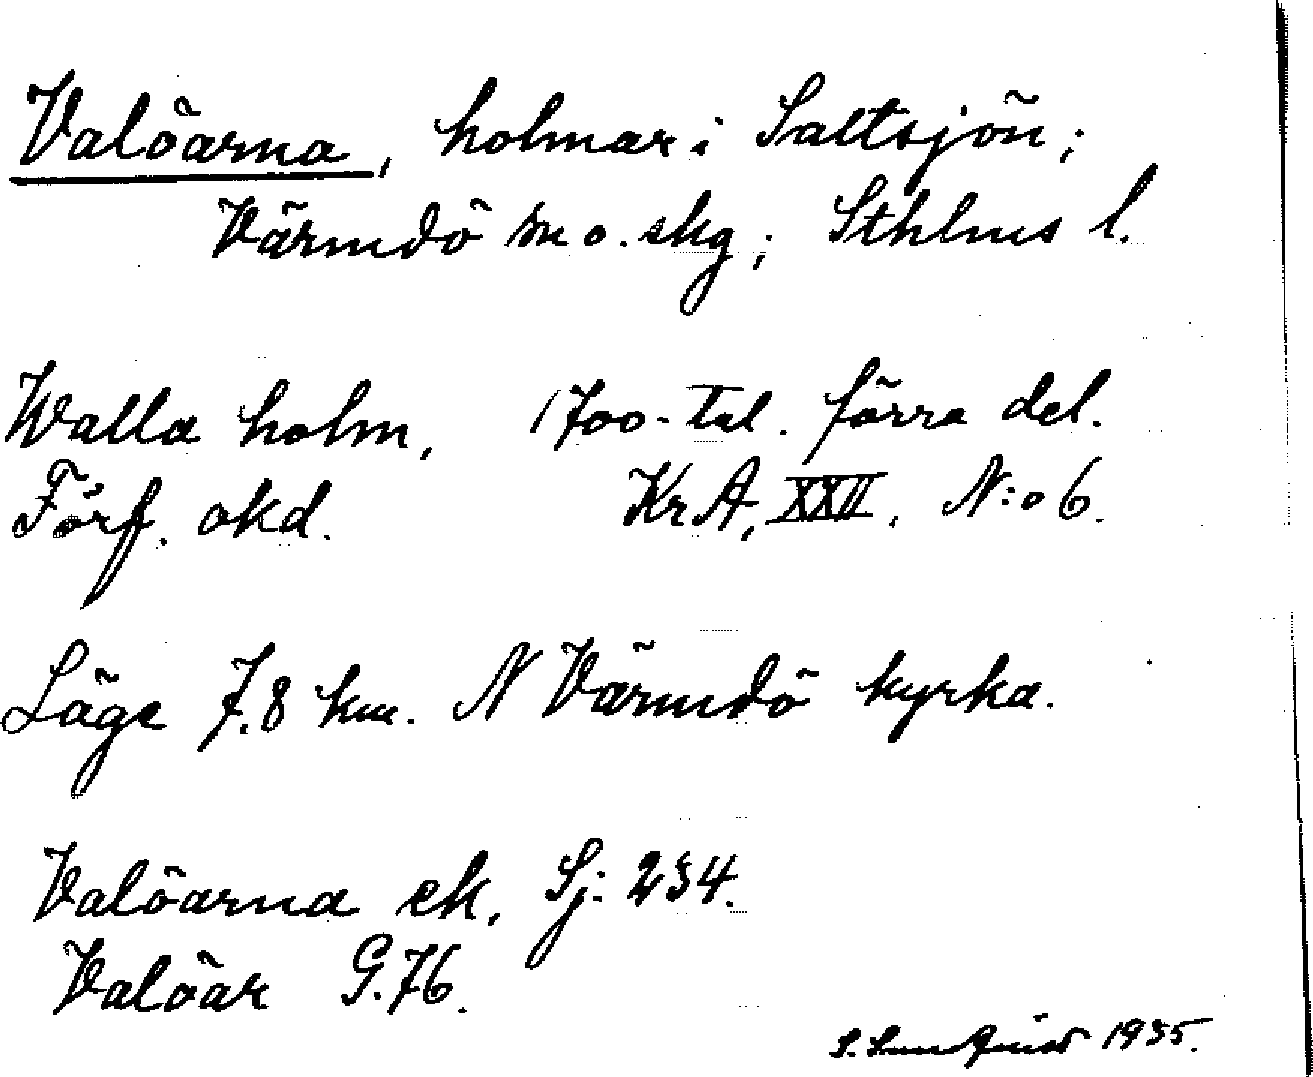 Valöarna, holmar i Saltsjön;
Värmdö sn o. skg; Sthlms l.
Walla holm, 1700-tal. förra del.
Förf. okd. KrA, XXII, N:o 6.
Läge 7.8 km. N Värmdö kyrka.
Valöarna ek, Sj: 234.
Valöar G.76.
S. 1935.